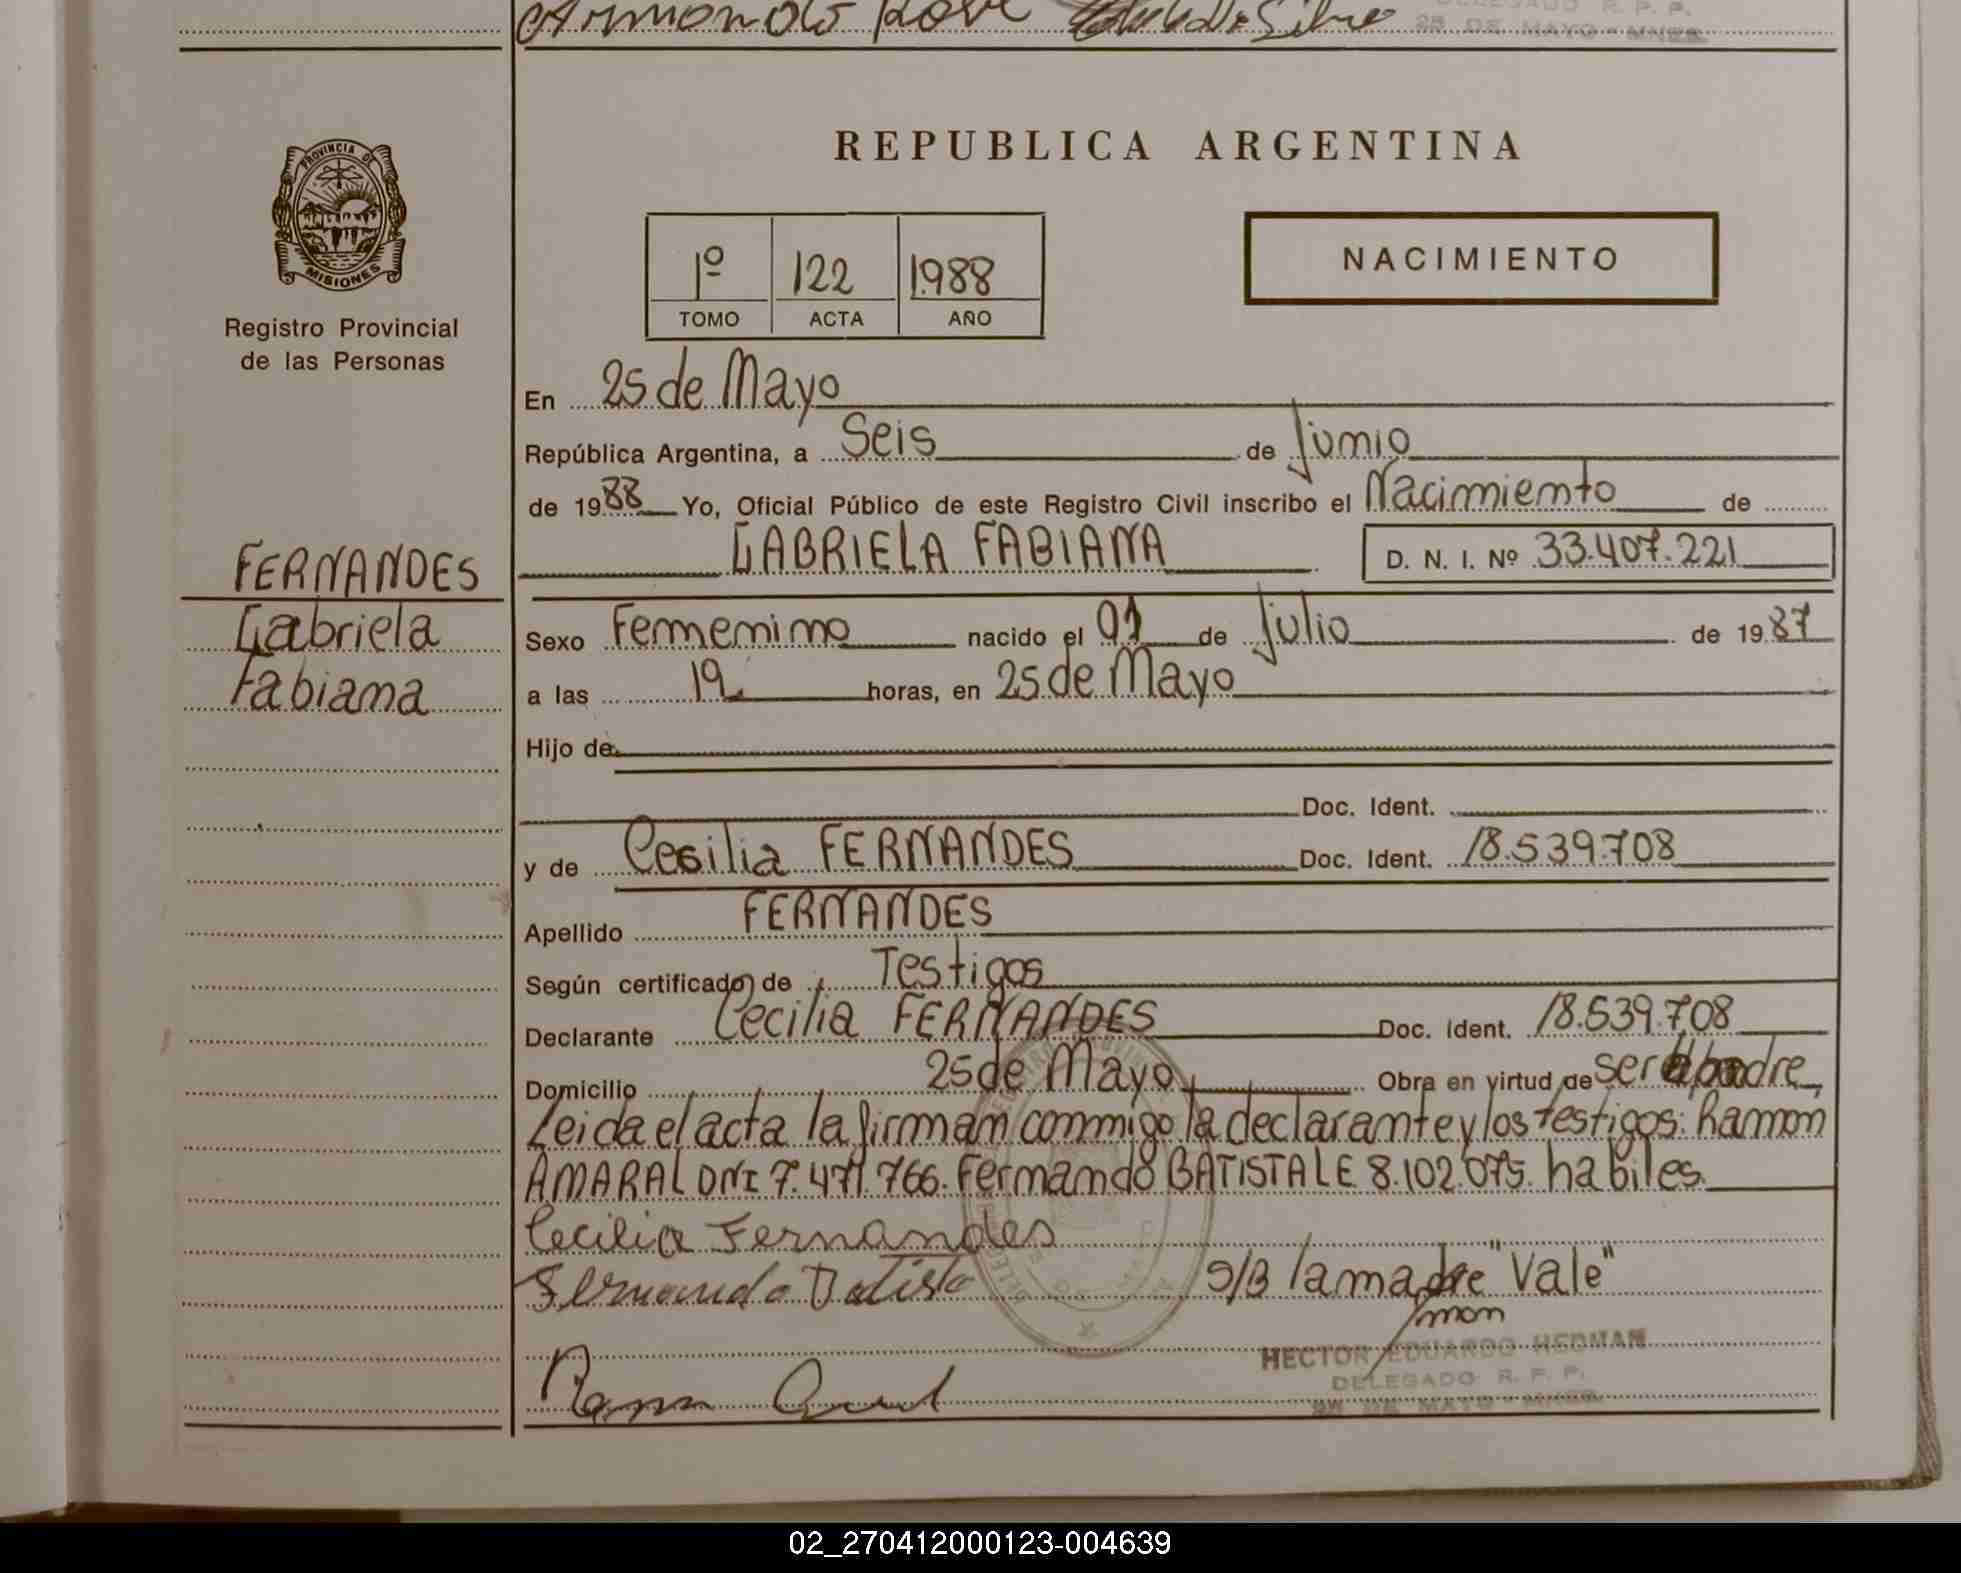 Armando José
DELEGADO R. P. P.
25 DE MAYO - MNES.
PROVINCIA DE
MISIONES
Registro Provincial
de las Personas
REPUBLICA ARGENTINA
1º 122 1988
TOMO ACTA AÑO
NACIMIENTO
En 25 de Mayo
República Argentina, a Seis de Junio
de 1988 Yo, Oficial Público de este Registro Civil inscribo el Nacimiento de
GABRIELA FABIANA D. N. I. Nº 33.407.221
FERNANDES
Gabriela
Fabiana
Sexo Femenino nacido el 01 de Julio de 1987
a las 19 horas, en 25 de Mayo
Hijo de
Doc. Ident.
y de Cecilia FERNANDES Doc. Ident. 18.539.708
Apellido FERNANDES
Según certificado de Testigos
Declarante Cecilia FERNANDES Doc. Ident. 18.539.708
Domicilio 25 de Mayo Obra en virtud de ser la madre
Leida el acta la firman conmigo la declarante y los testigos: Ramon
AMARAL DNI 7.471.766. Fernando BATISTA LE 8.102.075. habiles
Cecilia Fernandes
Fernando Batista S/B la madre "Vale"
HECTOR EDUARDO HEDMAN
DELEGADO R. P. P.
25 DE MAYO - MNES.
02_270412000123-004639